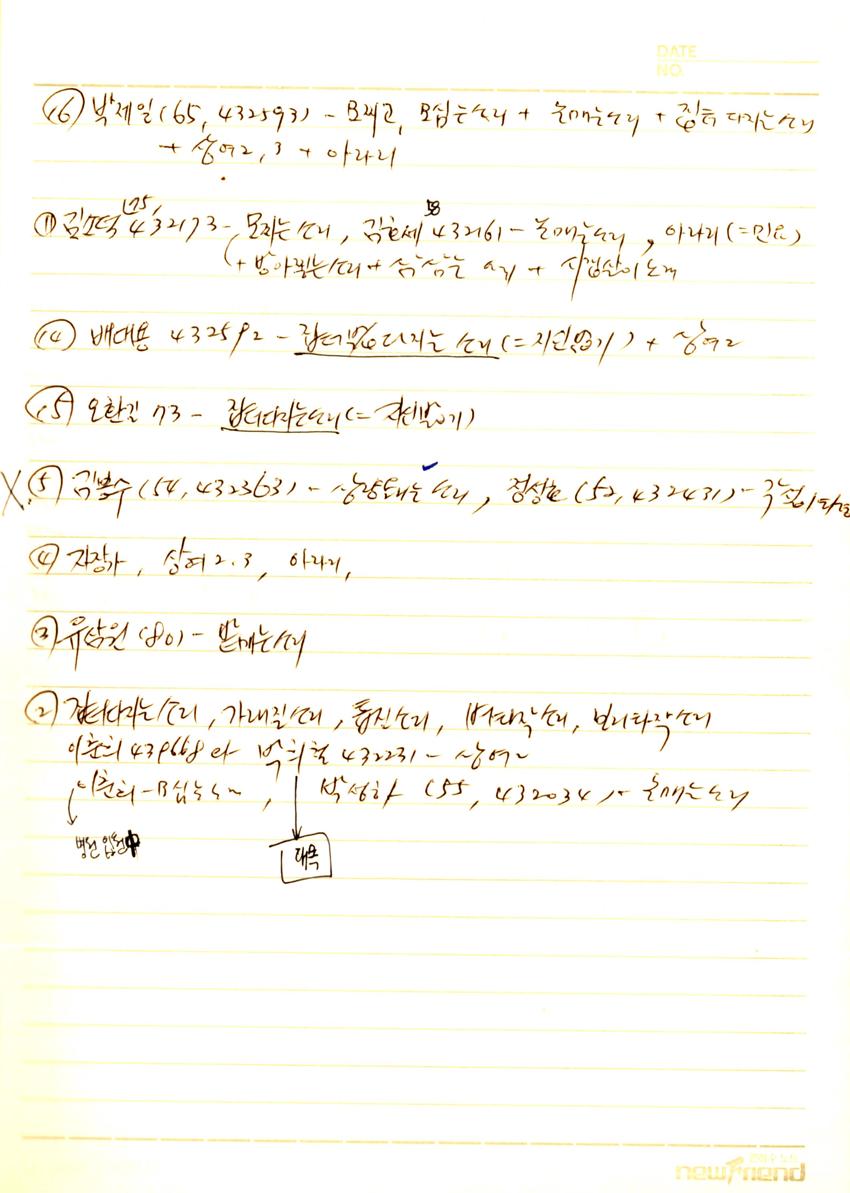 DATE
NO.
(16) 박제일 (65, 432593) - 모찌고, 모심는소리 + 논매는소리 + 집터다지는소리
+ 상여2, 3 + 아라리
(75)
① 432173 - 모찌는소리, 58 432161 - 논매는소리, 아라리 (=민요)
(+ 방아찧는소리 + 삼삼는 소리 + 시집살이노래
(14) 배대용 432592 - 집터 다지는 소리 (=지신밟기) + 상여2
(15) 오한길 73 - 집터다지는소리 (= 지신밟기)
X (5) 김봉수 (54, 4323631) - 소리, 정상호 (52, 432431) -
(4) 자장가, 상여 2.3, 아라리,
(3) 유남원 (80) - 밭매는소리
(2) 집터다지는소리, 가래질소리, 소리, 벼타작소리, 보리타작소리
이춘희 439668 와 박희철 432231 - 상여2
이춘희 - 모심는소리, 박성하 (55, 432034) - 논매는소리
병원 입원中
태백
newfriend